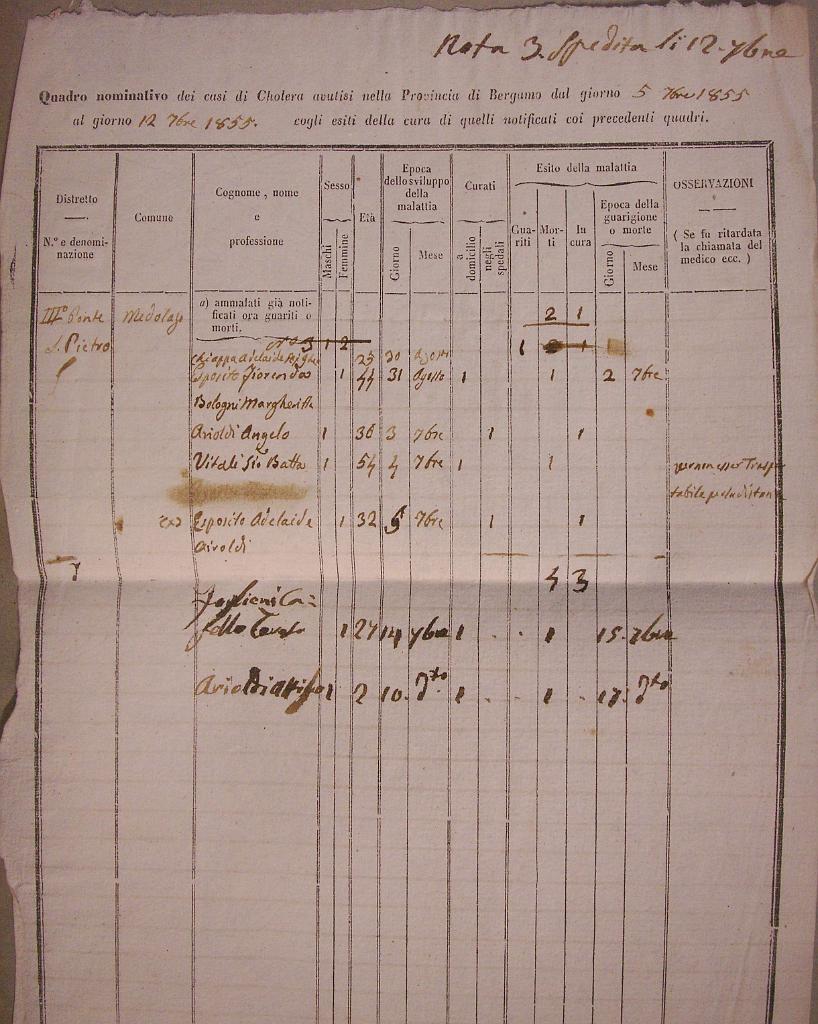 Nota 3. Spedita li 12. 7bre
Quadro nominativo dei casi di Cholera avutisi nella Provincia di Bergamo dal giorno 5 7bre 1855
al giorno 12 7bre 1855. cogli esiti della cura di quelli notificati coi precedenti quadri.
Distretto
N.º e denomi-
nazione
Comune
Cognome, nome
e
professione
Sesso
Maschi
Femmine
Età
Epoca
dello sviluppo
della
malattia
Giorno
Mese
Curati
a
domicilio
negli
spedali
Esito della malattia
Gua-
riti
Mor-
ti
In
cura
Epoca della
guarigione
o morte
Giorno
Mese
OSSERVAZIONI
( Se fu ritardata
la chiamata del
medico ecc. )
III° Ponte Medolago a) ammalati già noti-
ficati ora guariti o
morti. 2 1
S. Pietro Nº 3 1 2 1
Chiappa Adelaide 25 30 Agosto
Esposito 1 44 31 Agosto 1 1 2 7bre
Bologni Margherita
Arioldi Angelo 1 36 3 7bre 1 1
Vitali Gio Batta 1 54 4 7bre 1 1
Esposito Adelaide 1 32 7bre 1 1
Airoldi
4 3
1 27 14 7bre 1 . . 1 15. 7bre
1 2 10. dto 1 . . 1 . 17. dto